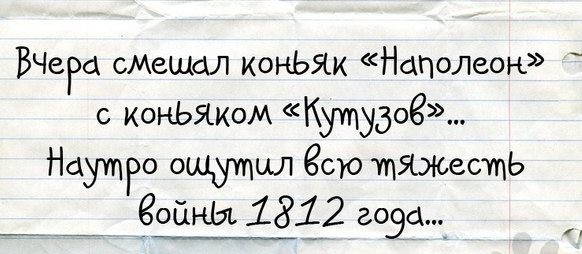 Вчера смешал коньяк «Наполеон»
с коньяком «Кутузов»...
Наутро ощутил всю тяжесть
войны 1812 года...